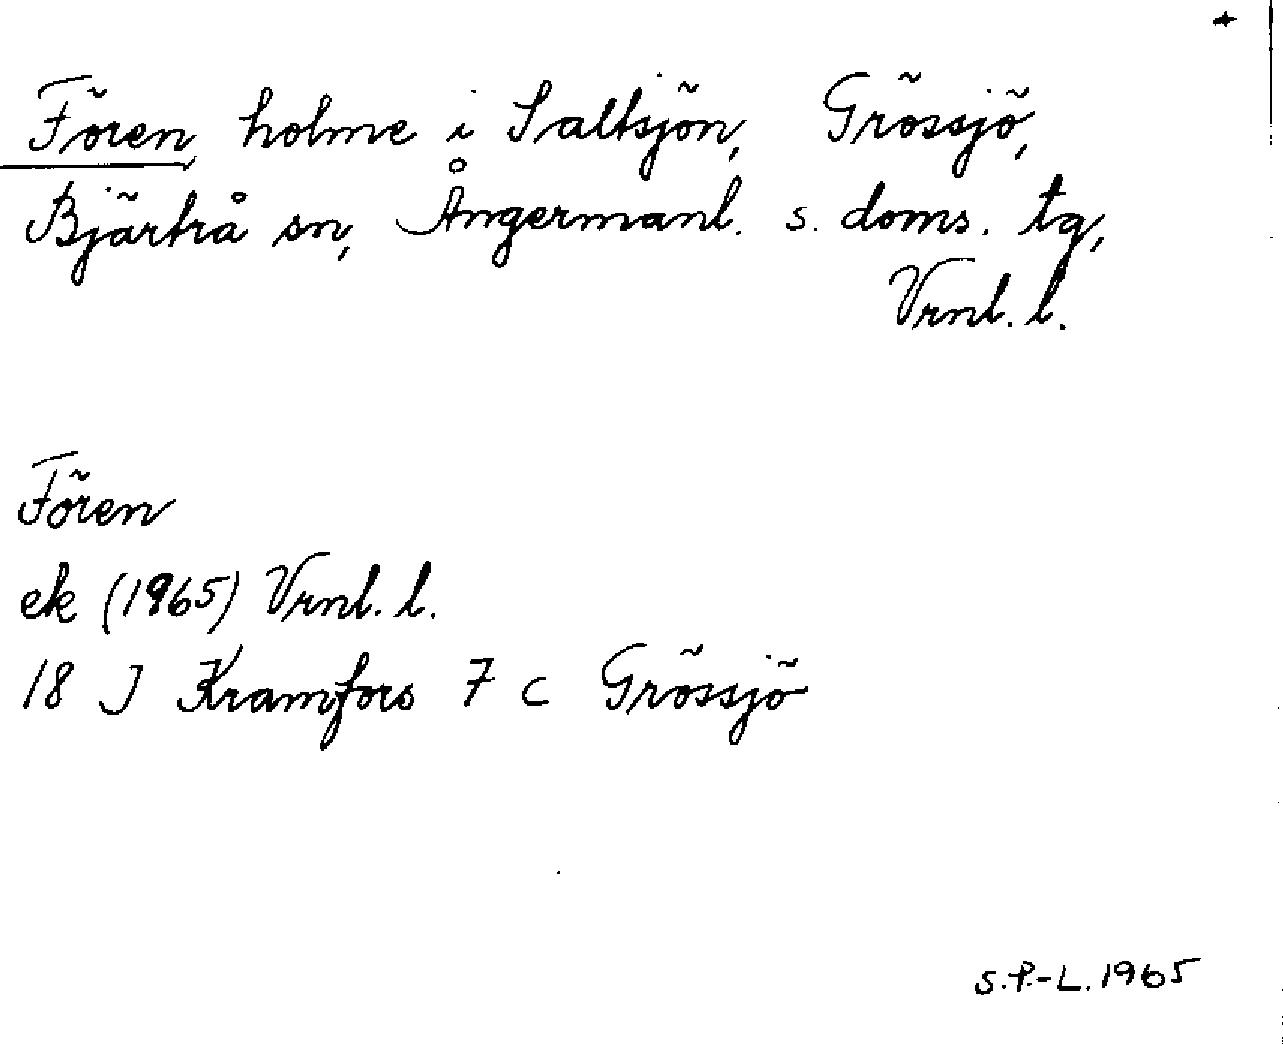 Fören, holme i Saltsjön, Grössjö,
Bjärtrå sn, Ångermanl. s. doms. tg,
Vrnl. l.
Fören
ek (1965) Vrnl. l.
18 J Kramfors 7 c Grössjö
S.P.-L. 1965